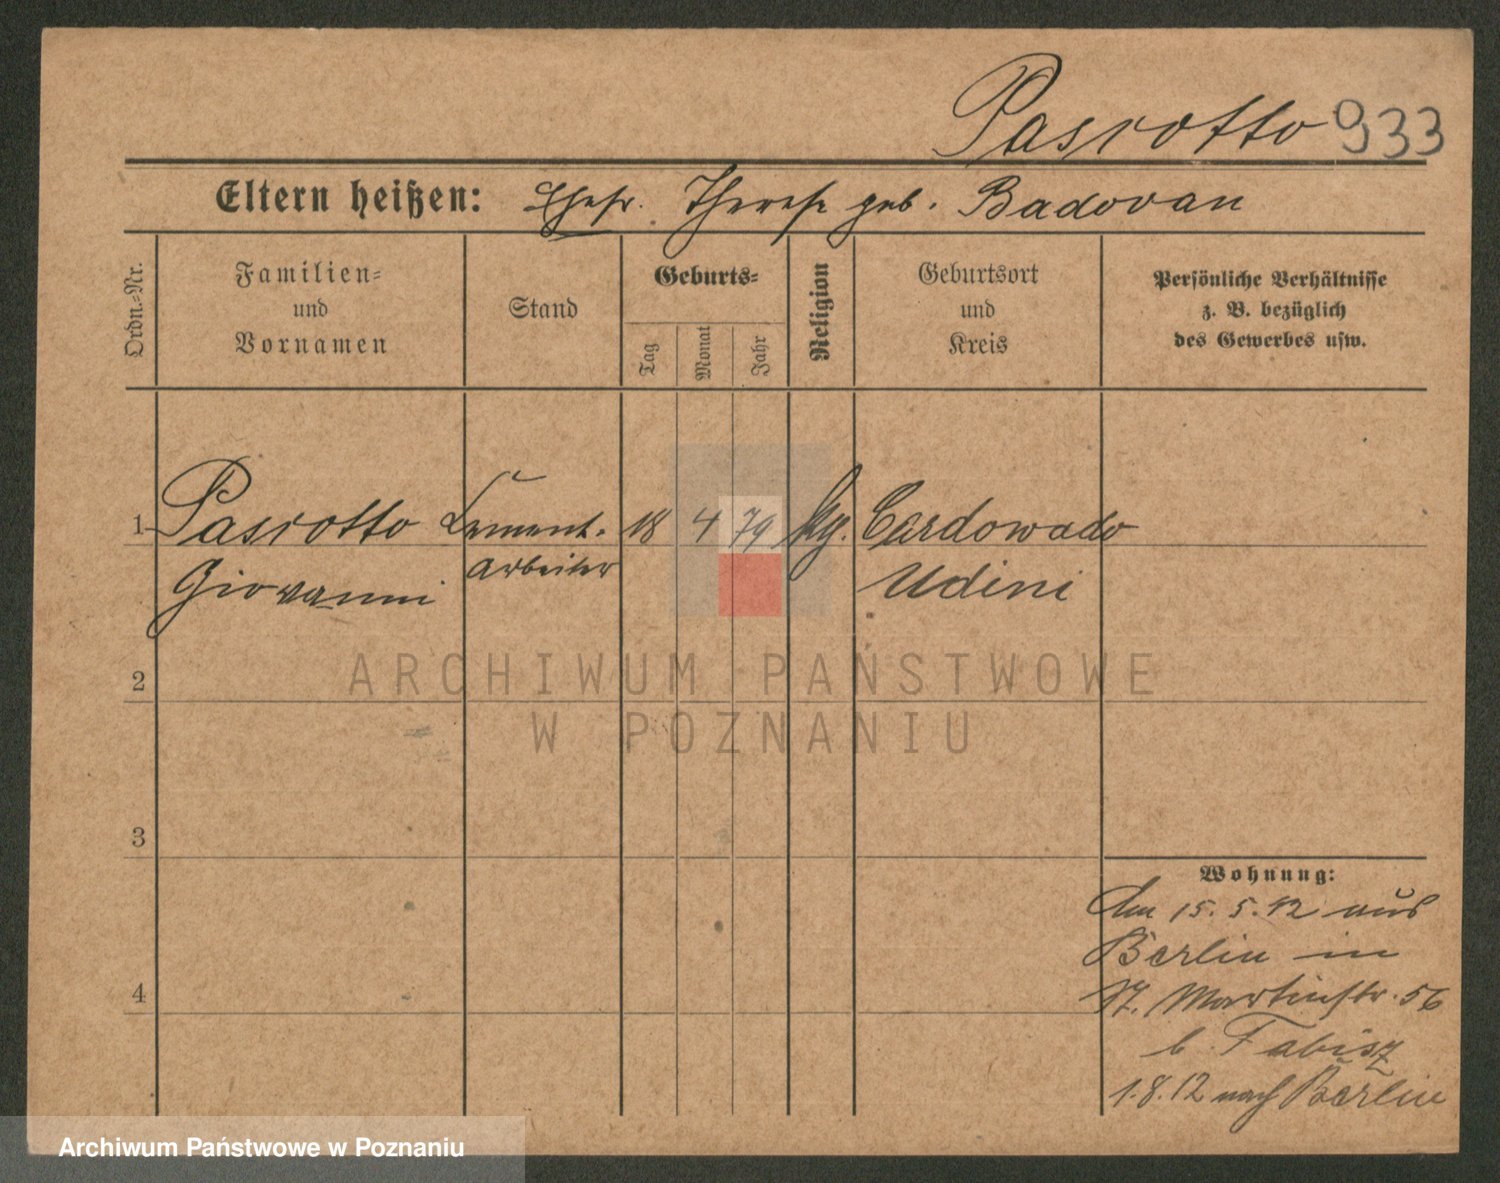 Pascotto 933
Eltern heißen: Ehefr. Therese geb. Badovan
Ordn.-Nr.
Familien-
und
Vornamen
Stand
Geburts-
Tag
Monat
Jahr
Religion
Geburtsort
und
Kreis
Persönliche Verhältnisse
z. B. bezüglich
des Gewerbes usw.
1 Pascotto Cement- 18 4 79 kg. Cordowado
Giovanni arbeiter Udini
2
3
4
Wohnung:
Am 15. 5. 12 aus
Berlin in
Martinstr. 56
b. Fabisz
1.8.12 nach Berlin
ARCHIWUM PAŃSTWOWE
W POZNANIU
Archiwum Państwowe w Poznaniu